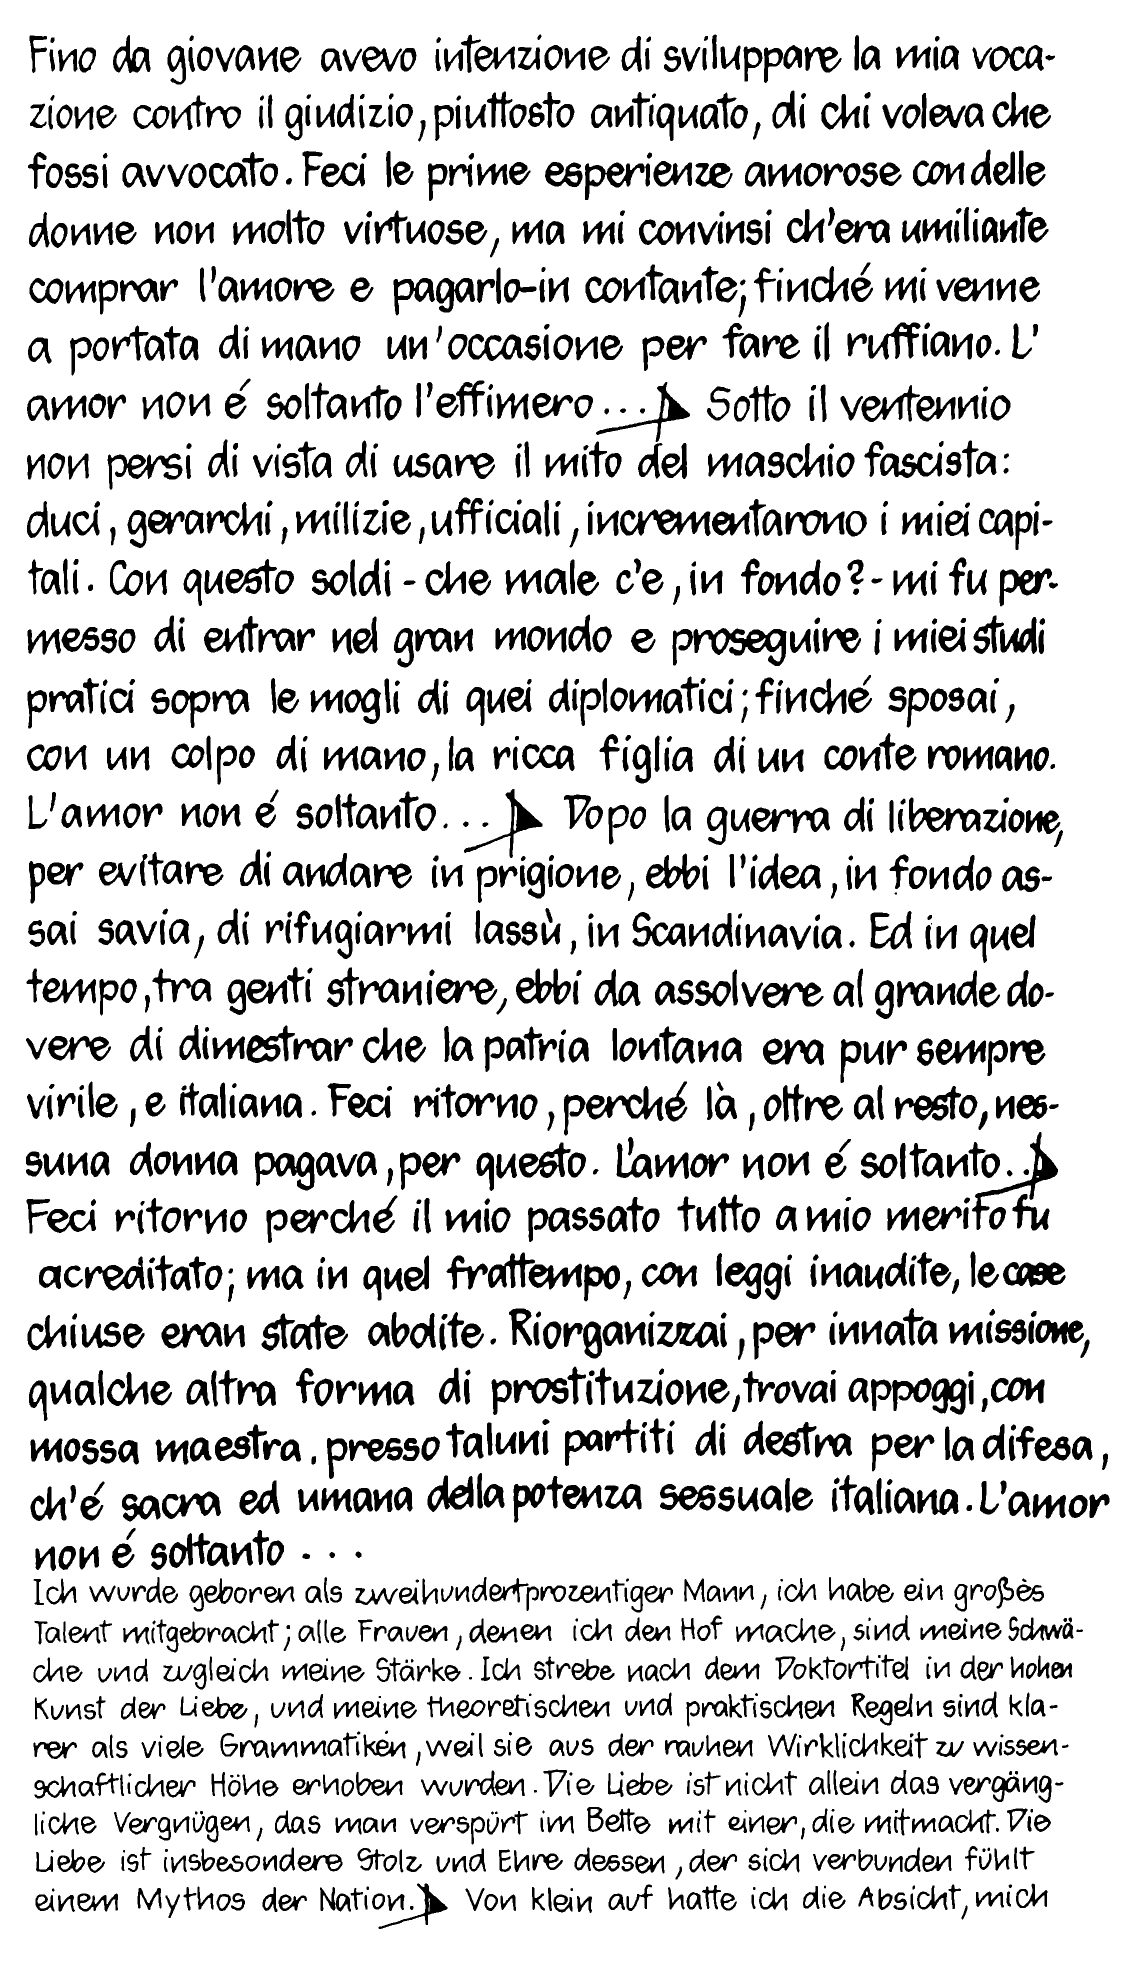 Fino da giovane avevo intenzione di sviluppare la mia voca-
zione contro il giudizio, piuttosto antiquato, di chi voleva che
fossi avvocato. Feci le prime esperienze amorose con delle
donne non molto virtuose, ma mi convinsi ch'era umiliante
comprar l'amore e pagarlo-in contante; finché mi venne
a portata di mano un'occasione per fare il ruffiano. L'
amor non é soltanto l'effimero... Sotto il ventennio
non persi di vista di usare il mito del maschio fascista:
duci, gerarchi, milizie, ufficiali, incrementarono i miei capi-
tali. Con questo soldi - che male c'e, in fondo? - mi fu per-
messo di entrar nel gran mondo e proseguire i miei studi
pratici sopra le mogli di quei diplomatici; finché sposai,
con un colpo di mano, la ricca figlia di un conte romano.
L'amor non é soltanto... Dopo la guerra di liberazione,
per evitare di andare in prigione, ebbi l'idea, in fondo as-
sai savia, di rifugiarmi lassù, in Scandinavia. Ed in quel
tempo, tra genti straniere, ebbi da assolvere al grande do-
vere di dimestrar che la patria lontana era pur sempre
virile, e italiana. Feci ritorno, perché là, oltre al resto, nes-
suna donna pagava, per questo. L'amor non é soltanto...
Feci ritorno perché il mio passato tutto a mio merito fu
acreditato; ma in quel frattempo, con leggi inaudite, le case
chiuse eran state abolite. Riorganizzai, per innata missione,
qualche altra forma di prostituzione, trovai appoggi, con
mossa maestra, presso taluni partiti di destra per la difesa,
ch'é sacra ed umana della potenza sessuale italiana. L'amor
non é soltanto ...
Ich wurde geboren als zweihundertprozentiger Mann, ich habe ein großes
Talent mitgebracht; alle Frauen, denen ich den Hof mache, sind meine Schwä-
che und zugleich meine Stärke. Ich strebe nach dem Doktortitel in der hohen
Kunst der Liebe, und meine theoretischen und praktischen Regeln sind kla-
rer als viele Grammatiken, weil sie aus der rauhen Wirklichkeit zu wissen-
schaftlicher Höhe erhoben wurden. Die Liebe ist nicht allein das vergäng-
liche Vergnügen, das man verspürt im Bette mit einer, die mitmacht. Die
Liebe ist insbesondere Stolz und Ehre dessen, der sich verbunden fühlt
einem Mythos der Nation. Von klein auf hatte ich die Absicht, mich